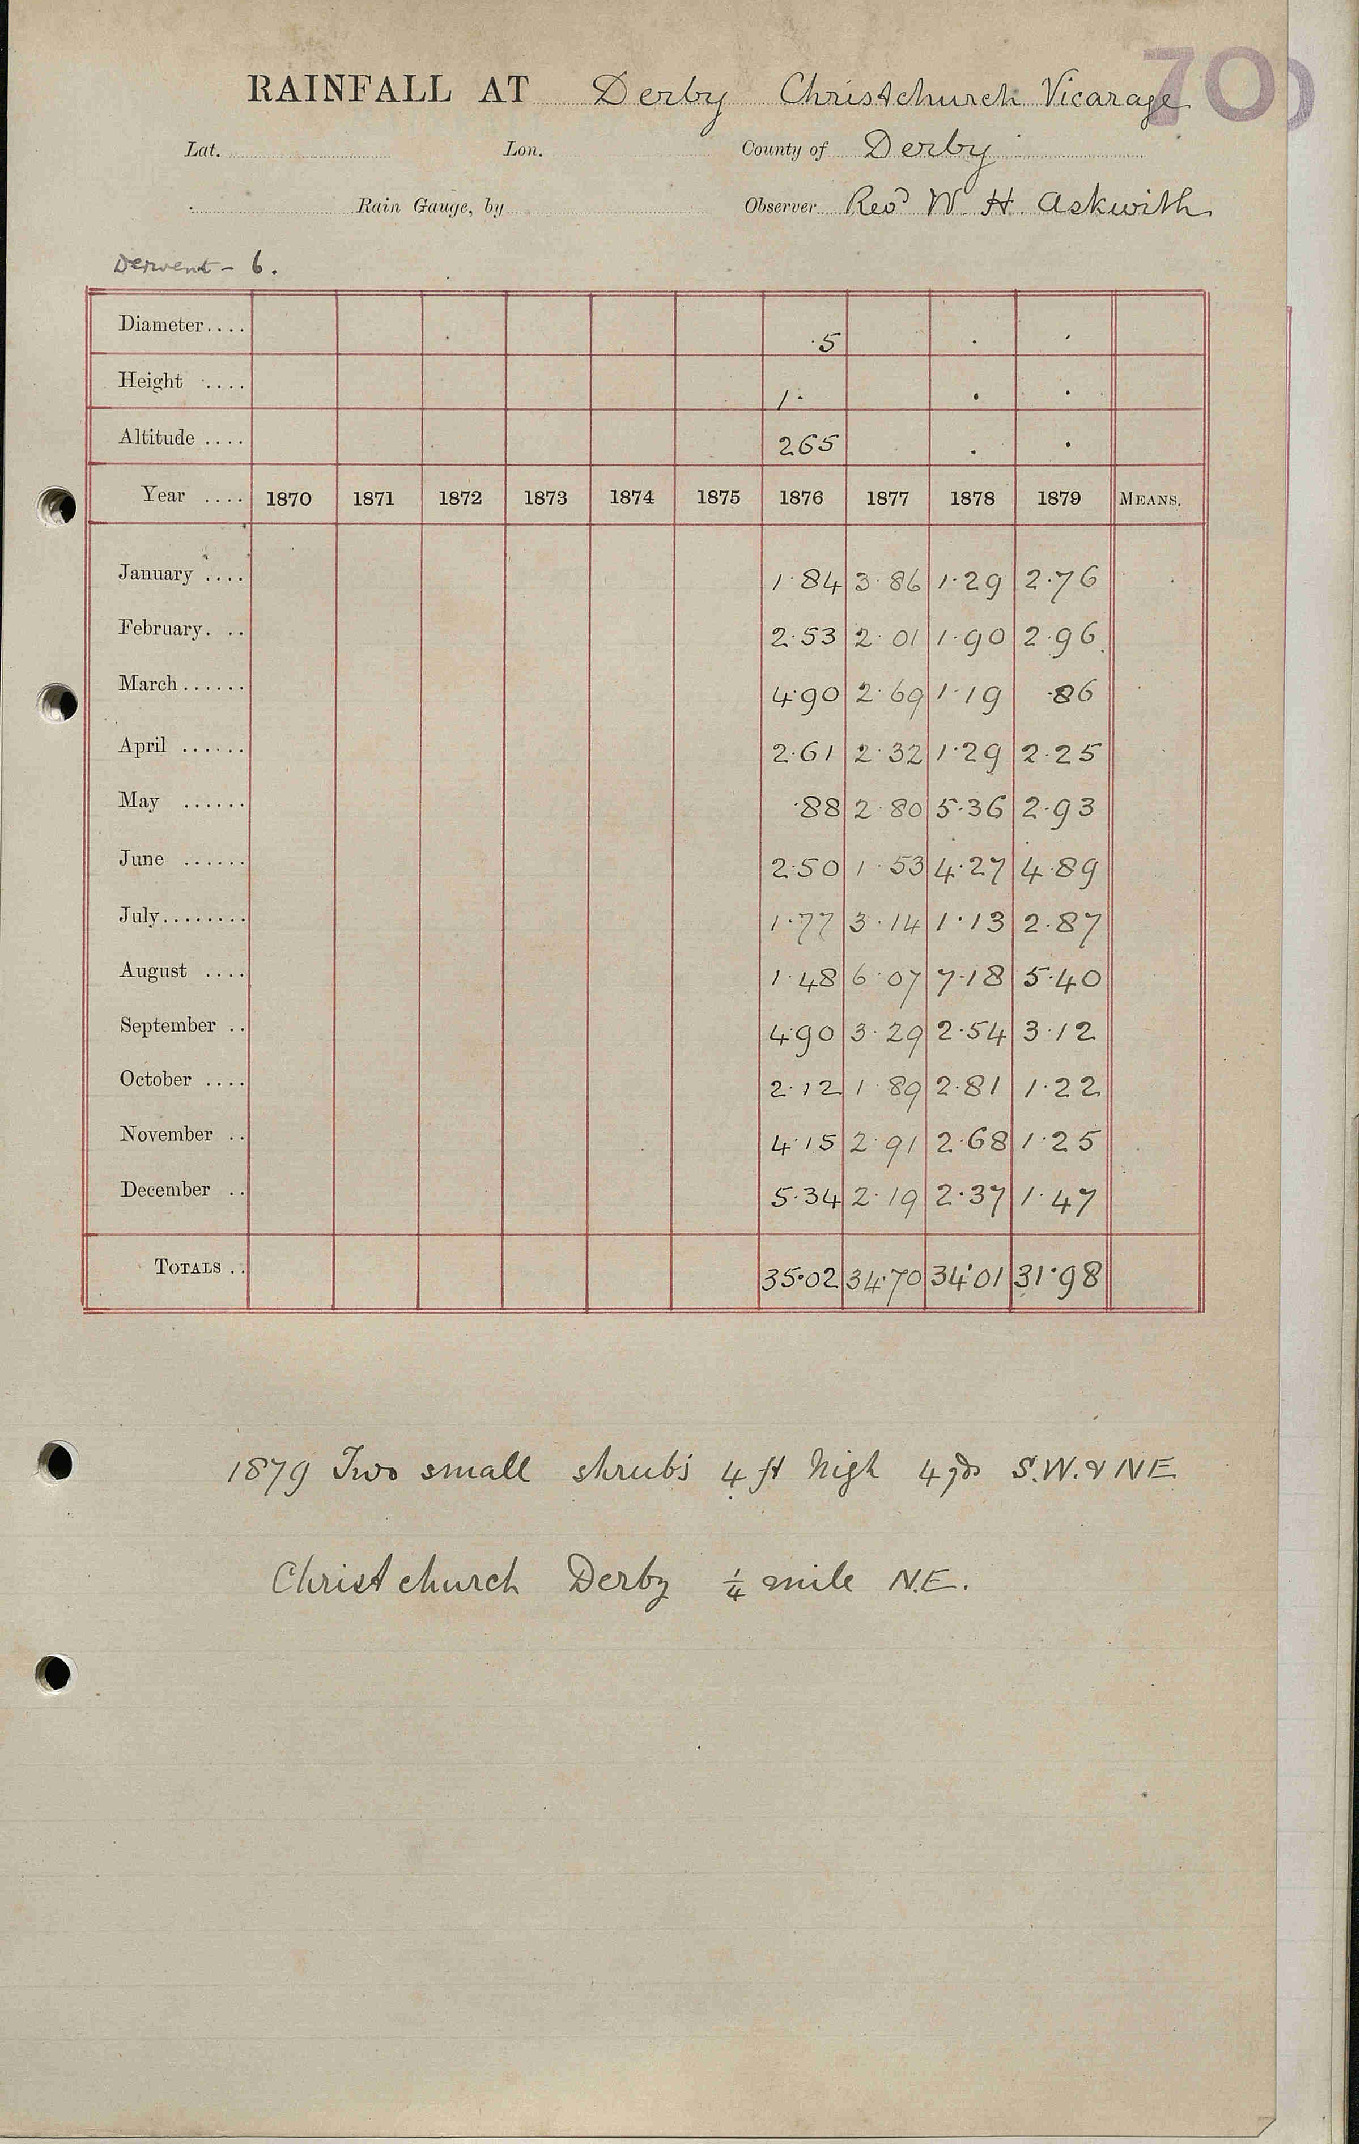 70
RAINFALL AT Derby Christchurch Vicarage
Lat. Lon. County of Derby
Rain Gauge, by Observer Revd W H Askwith
Derwent - 6.
Diameter.... ·5 . .
Height .... 1· . .
Altitude .... 265 . .
Year .... 1870 1871 1872 1873 1874 1875 1876 1877 1878 1879 MEANS.
January .... 1·84 3·86 1·29 2·76
February. .. 2·53 2·01 1·90 2·96
March...... 4·90 2·69 1·19 ·86
April ...... 2·61 2·32 1·29 2·25
May ...... ·88 2·80 5·36 2·93
June ...... 2·50 1·53 4·27 4·89
July........ 1·77 3·14 1·13 2·87
August .... 1·48 6·07 7·18 5·40
September .. 4·90 3·29 2·54 3·12
October .... 2·12 1·89 2·81 1·22
November .. 4·15 2·91 2·68 1·25
December .. 5·34 2·19 2·37 1·47
TOTALS .. 35·02 34·70 34·01 31·98
1879 Two small shrubs 4 ft high 4 yds S.W. & NE
Christchurch Derby ¼ mile N.E.